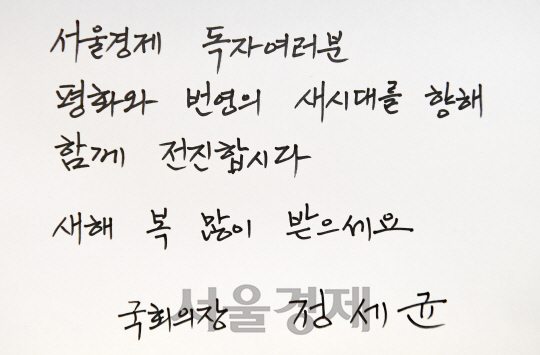 서울경제 독자여러분
평화와 번영의 새시대를 향해
함께 전진합시다
새해 복 많이 받으세요
서울경제
국회의장 정세균